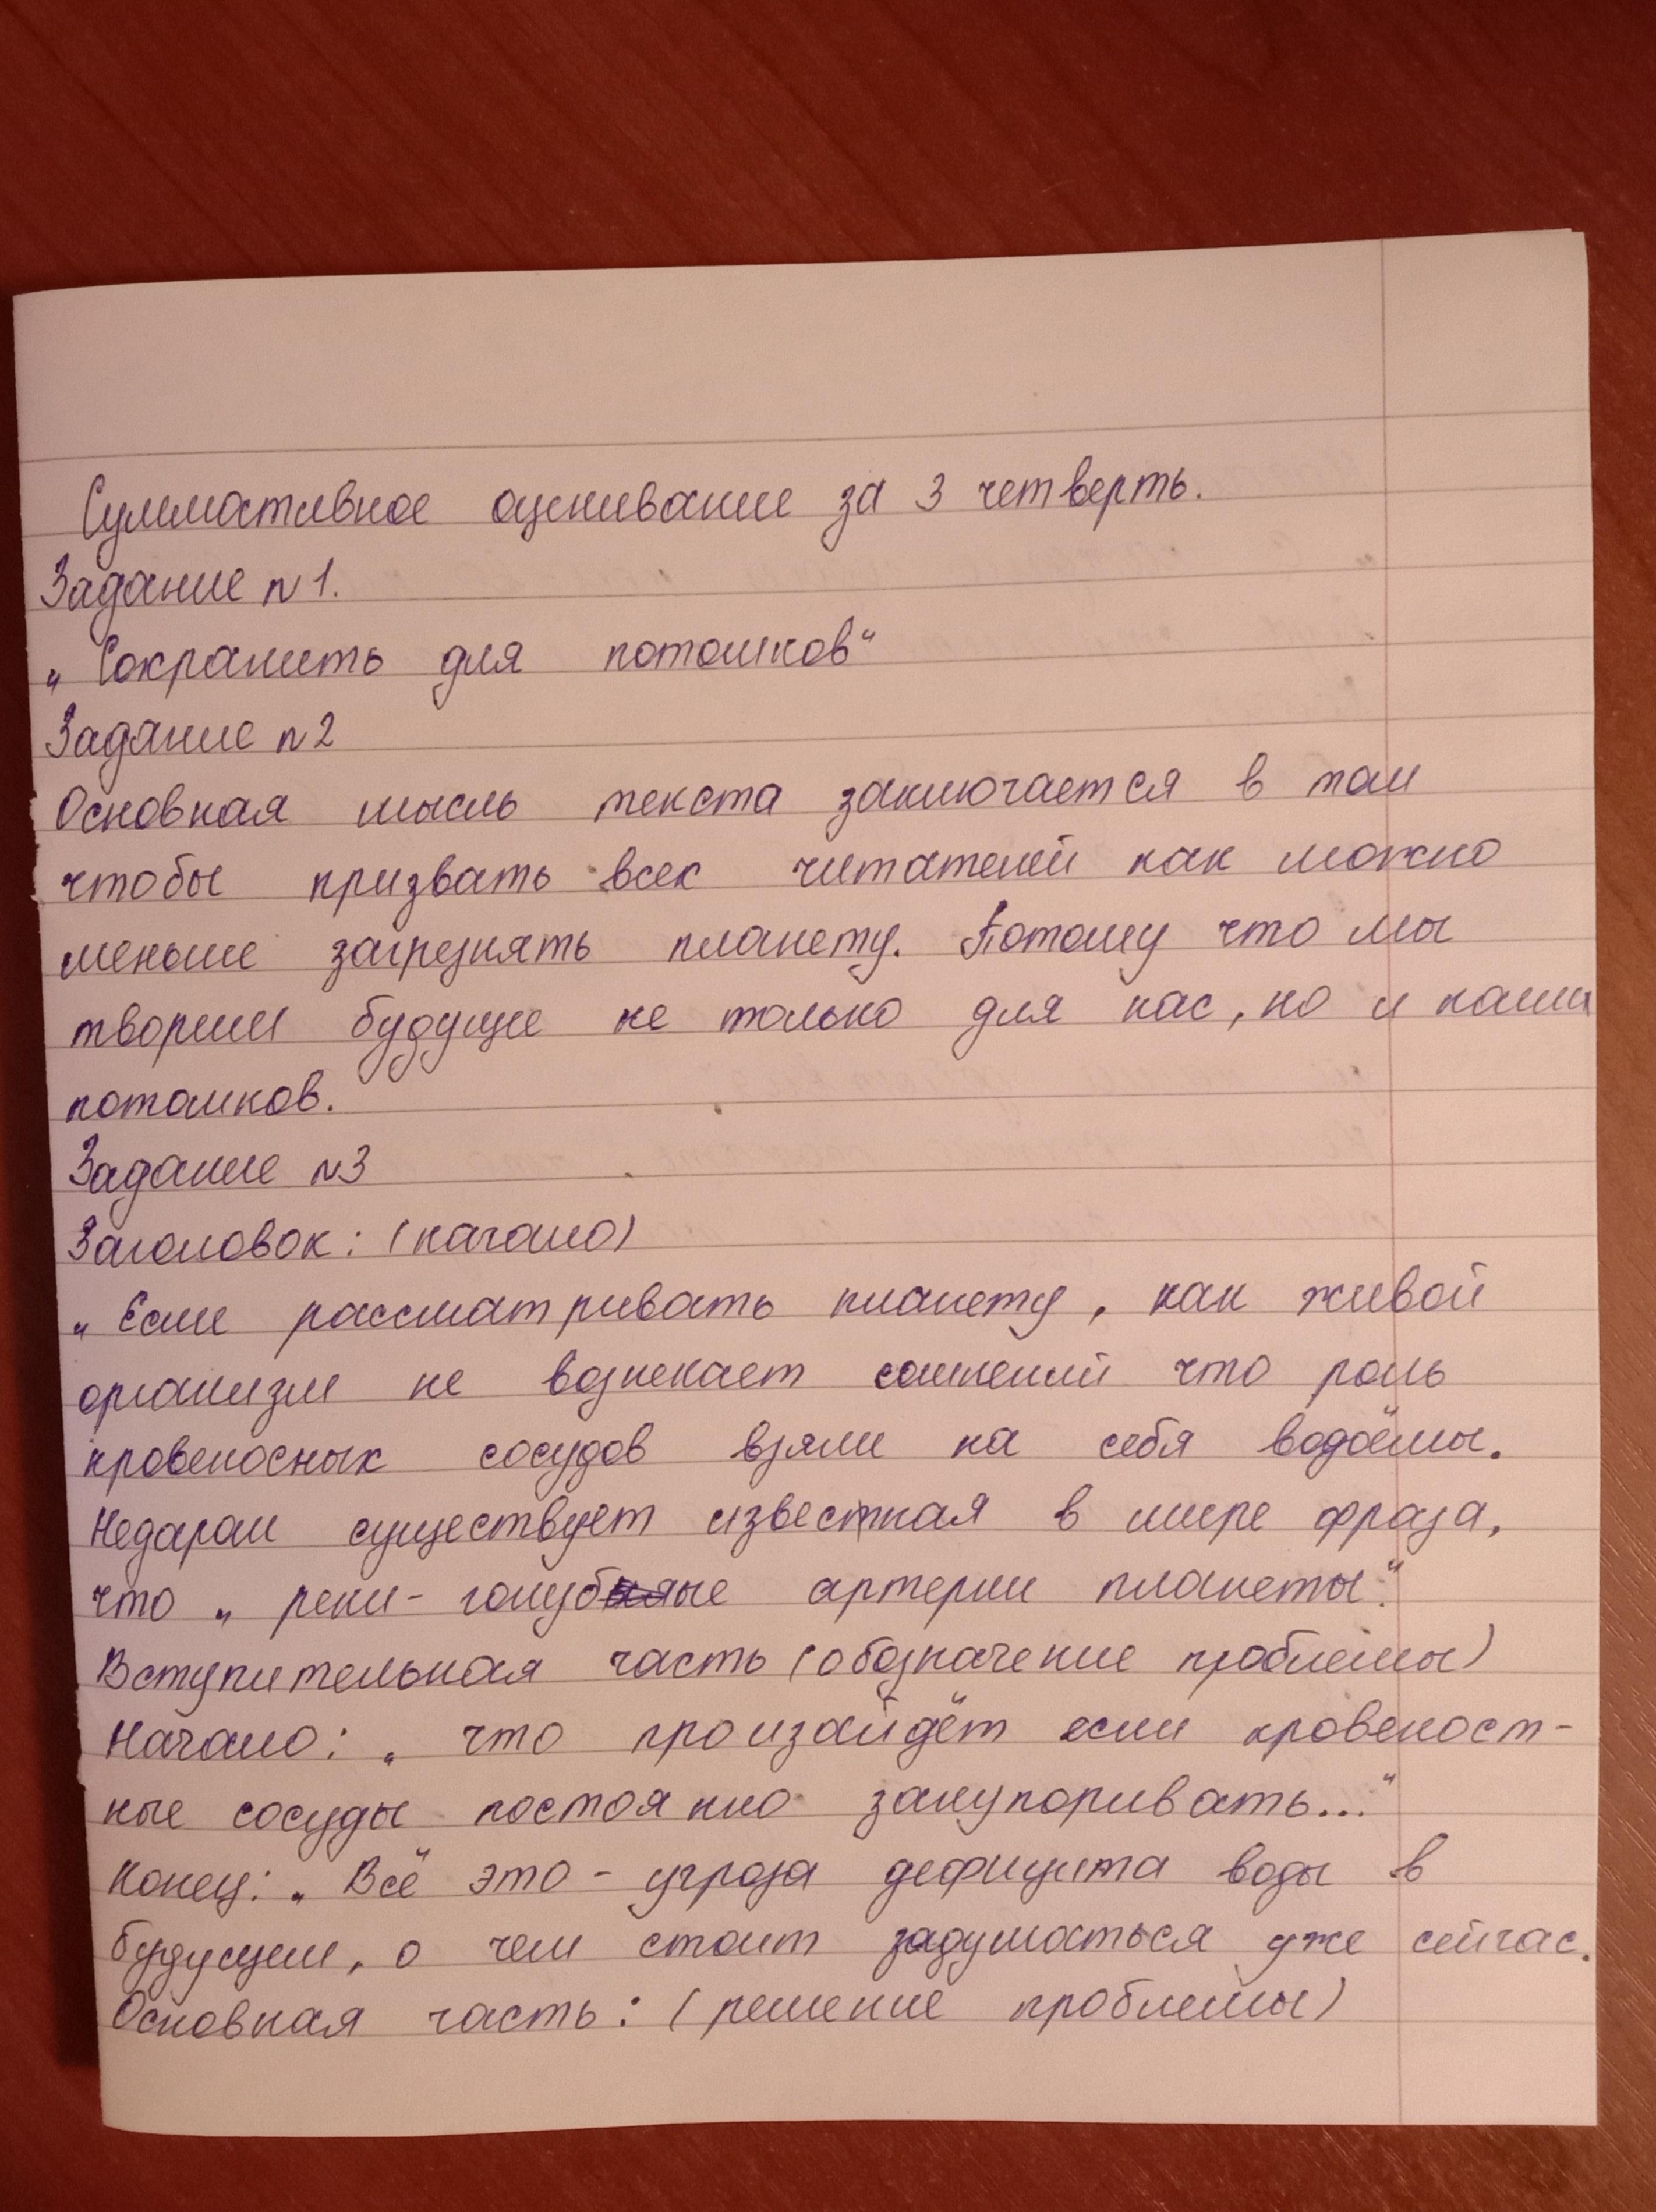 Суммативное оценивание за 3 четверть.
Задание n1.
„Сохранить для потомков“
Задание n2
Основная мысль текста заключается в том
чтобы призвать всех читателей как можно
меньше загрезнять планету. Потому что мы
творим будущие не только для нас, но и наших
потомков.
Задание n3
Заголовок: (начало)
„Если рассматривать планету, как живой
организм не возникает сомнений что роль
кровеносных сосудов взяли на себя водоёмы.
Недаром существует известная в мире фраза,
что „реки- голубые артерии планеты“.
Вступительная часть (обозначение проблемы)
Начало: „что произайдёт если кровеност-
ные сосуды постоянно закупоривать...“
Конец: „Всё это - угроза дефицита воды в
будущем, о чем стоит задуматься уже сейчас.
Основная часть: (решение проблемы)